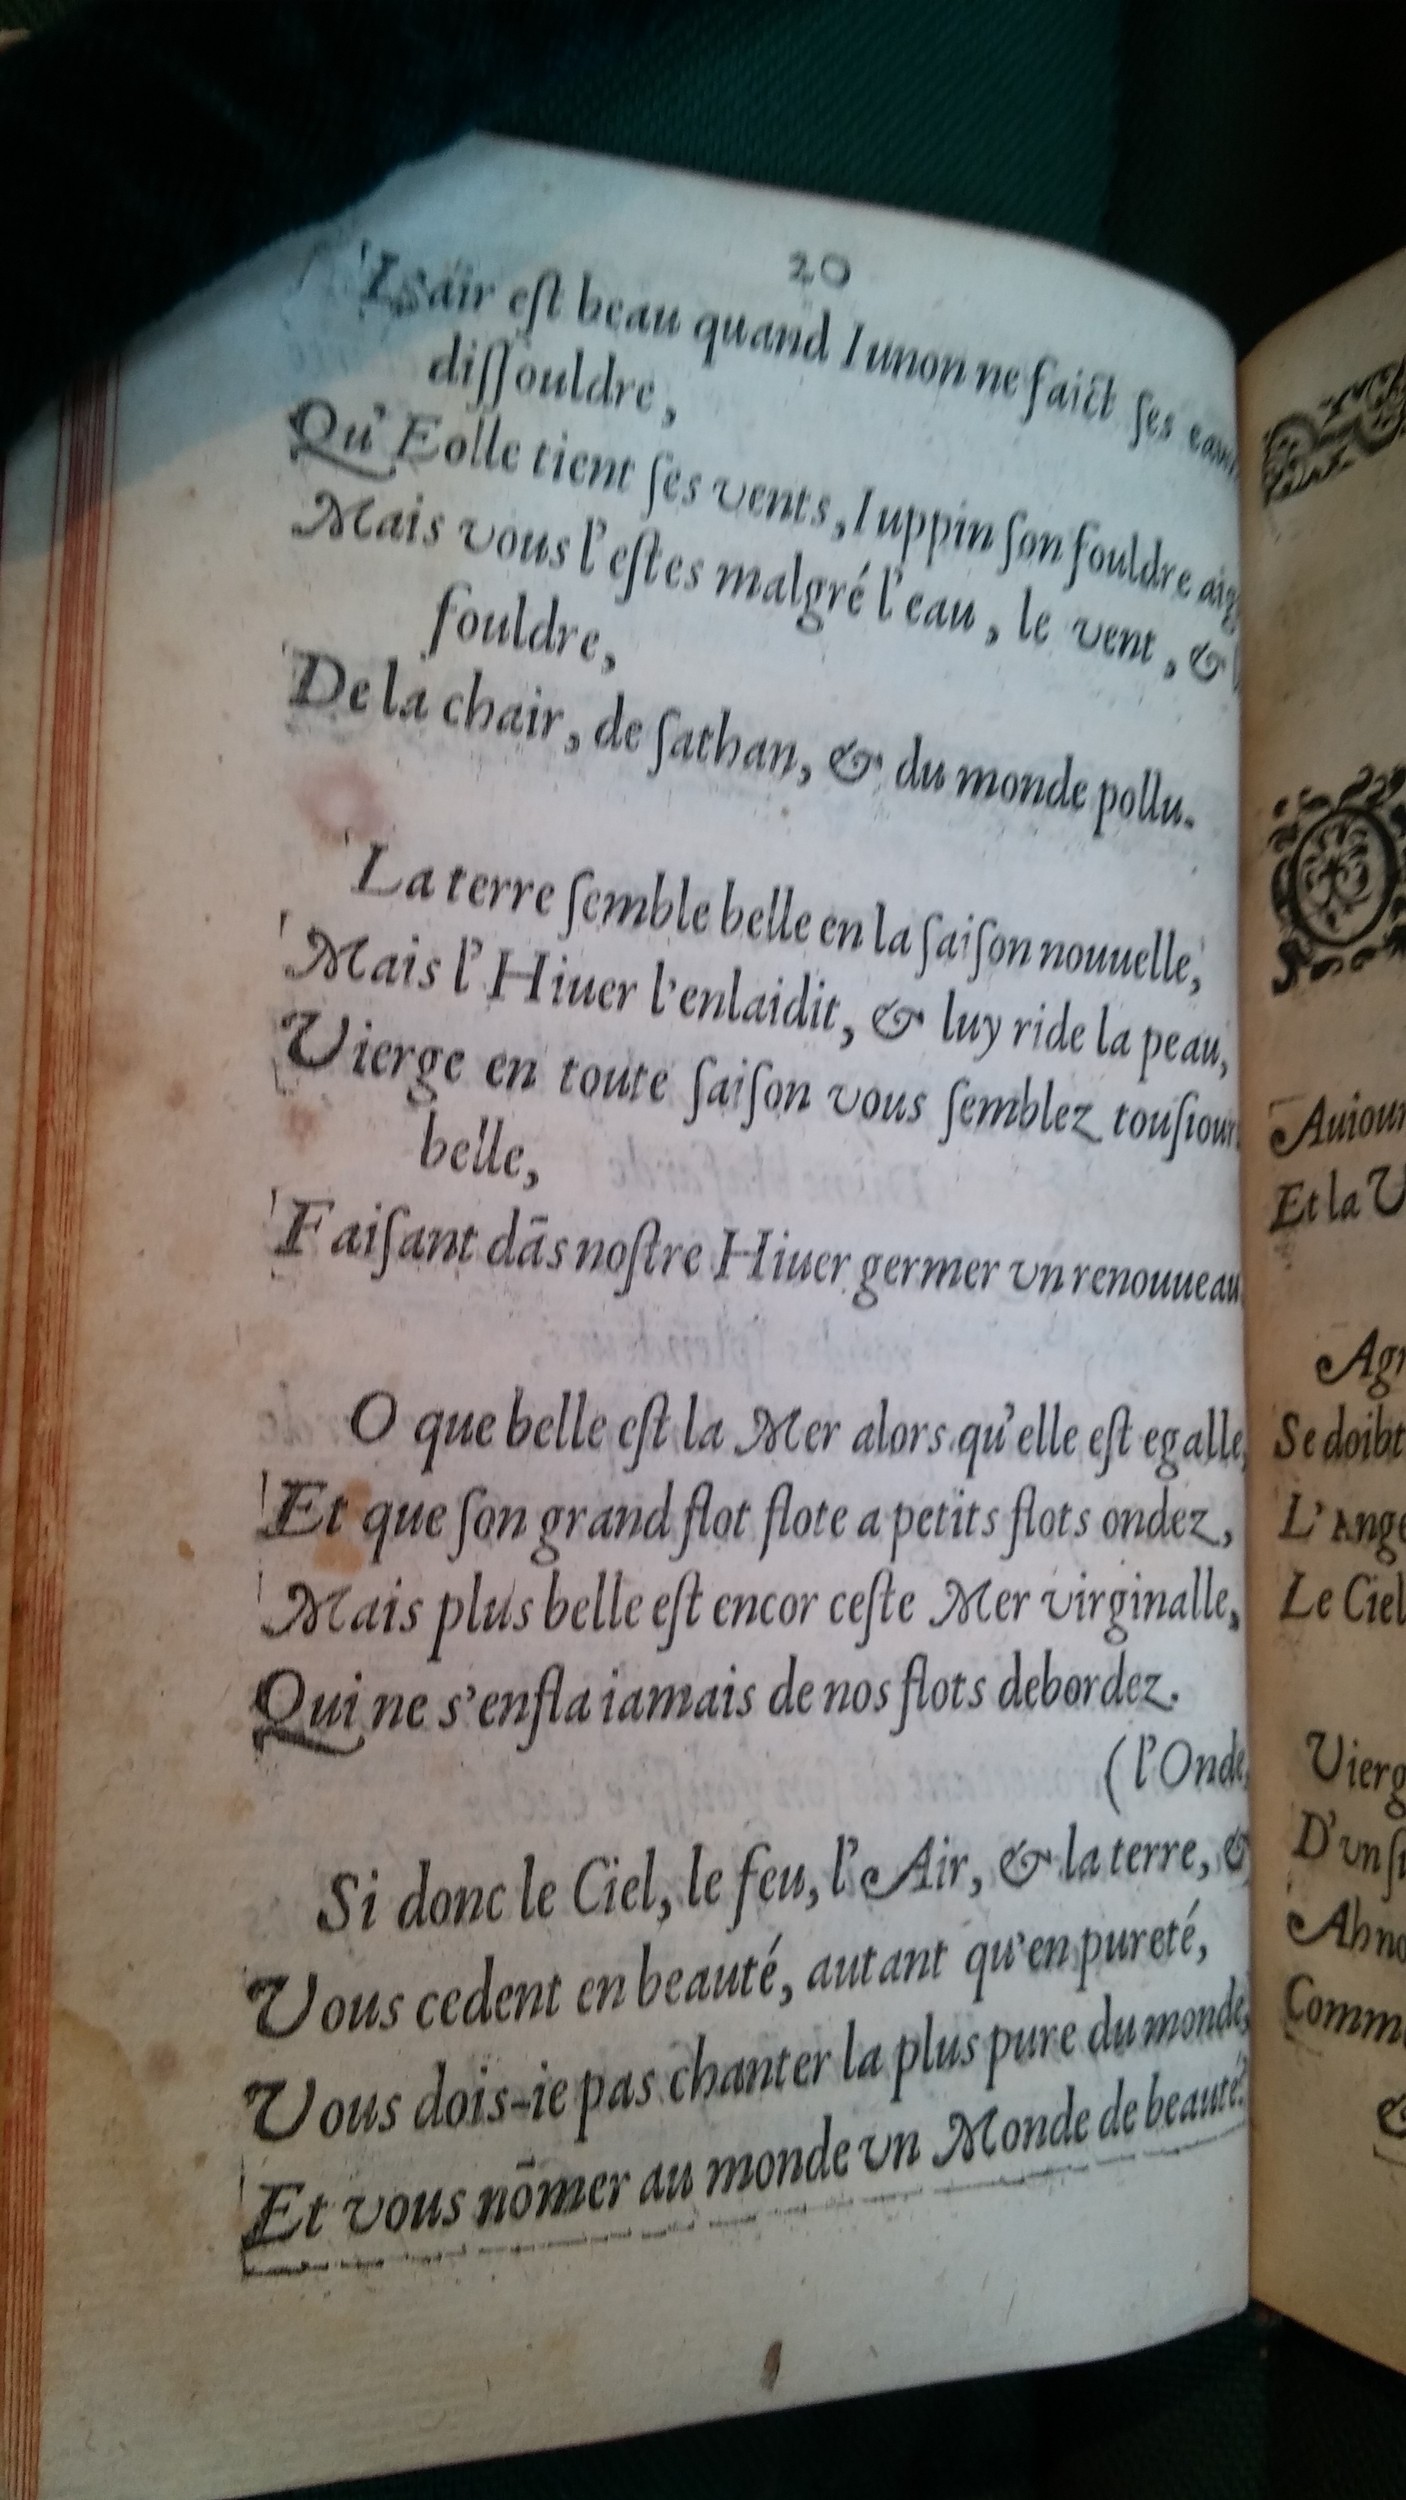 20
L'air eſt beau quand Iunon ne faict ſes
diſſouldre,
Qu'Eolle tient ſes vents, Iuppin ſon fouldre
Mais vous l'eſtes malgré l'eau, le vent, &
fouldre,
De la chair, de ſathan, & du monde pollu.
La terre ſemble belle en la ſaiſon nouuelle,
Mais l'Hiuer l'enlaidit, & luy ride la peau,
Vierge en toute ſaiſon vous ſemblez touſiour
belle,
Faiſant dãs noſtre Hiuer germer vn renouueau
O que belle eſt la Mer alors qu'elle eſt egalle,
Et que ſon grand flot flote a petits flots ondez,
Mais plus belle eſt encor ceſte Mer virginalle,
Qui ne s'enfla iamais de nos flots debordez.
(l'Onde,
Si donc le Ciel, le feu, l'Air, & la terre, &
Vous cedent en beauté, autant qu'en pureté,
Vous dois-ie pas chanter la plus pure du monde,
Et vous nõmer au monde vn Monde de beauté?
Auiour
Et la V
Agr
Se doibt
L'Ange
Le Ciel
Vierg
D'vn ſi
Ah no
Comm